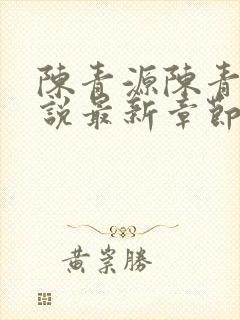 陳青源陳青
說最新章節
黃崇勝